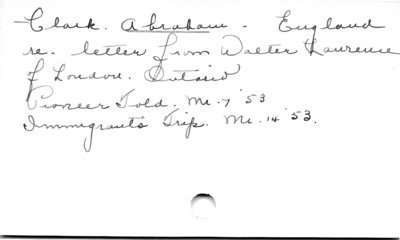 Clark. Abraham - England
re. letter from Walter Laurence
of London. Ontario
Pioneer Told. Mr. 7 '53
Immigrant's Trip. Mr. 14 '53.